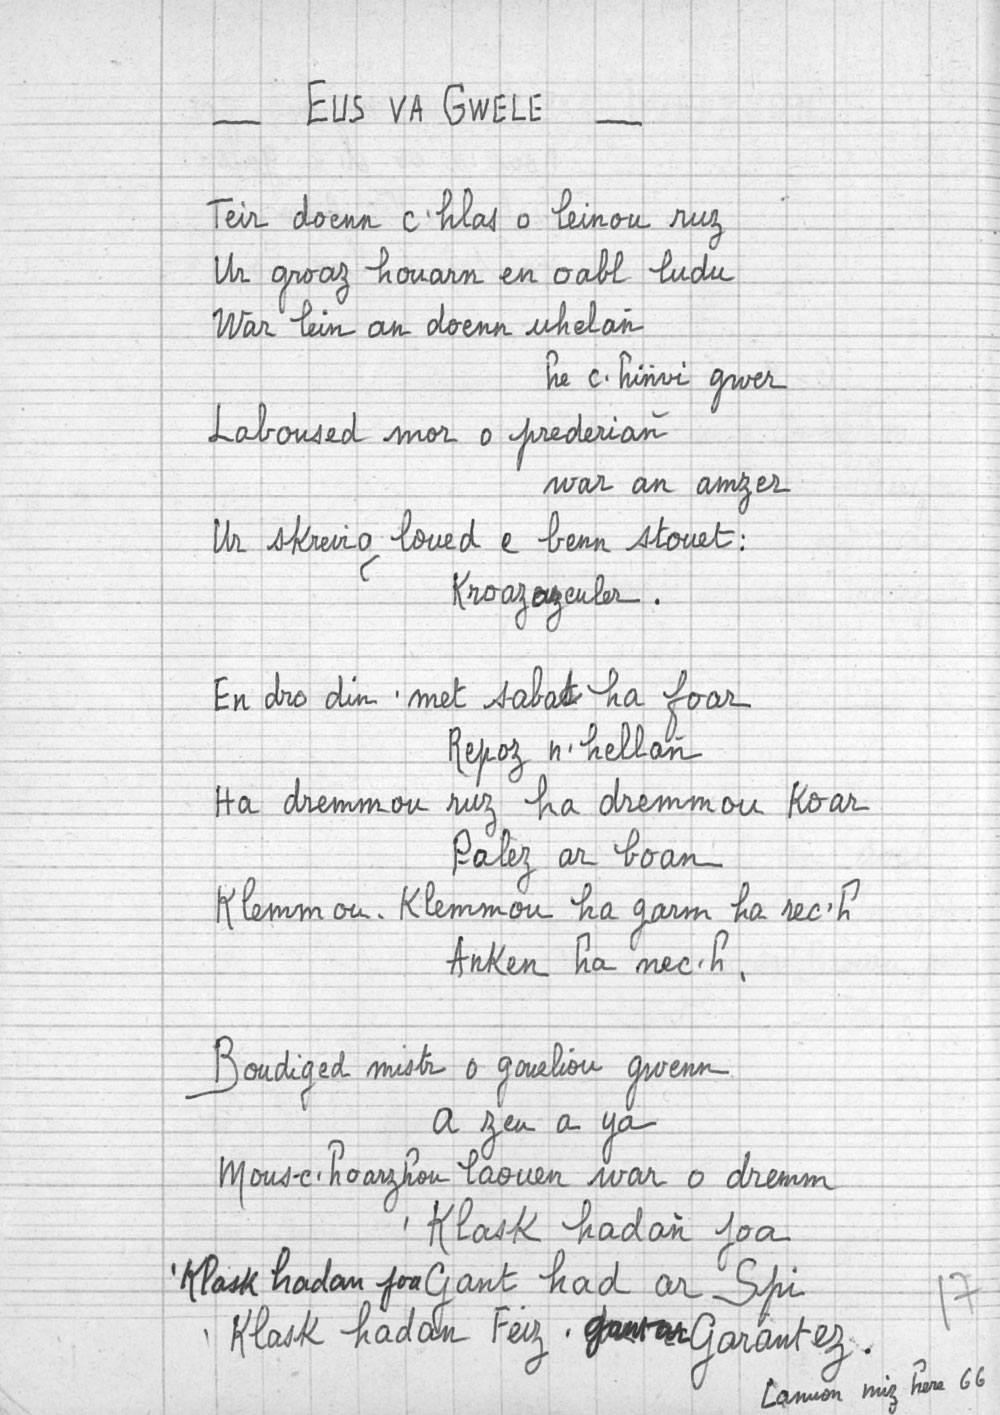 — EUS VA GWELE —
Teir doenn c'hlas o leinou ruz
Ur groaz houarn en oabl ludu
War lein an doenn uhelañ
he c'hinvi gwer
Laboused mor o prederiañ
war an amzer
Ur skreivg loued e benn stouet:
Kroazazeuler.
En dro din 'met sabat ha foar
Repoz n'hellañ
Ha dremmou ruz ha dremmou Koar
Palez ar boan
Klemmou. Klemmou ha garm ha rec'h
Anken ha nec'h.
Boudiged mistr o goueliou gwenn
A zeu a ya
Mous-c'hoarzhou laouen war o dremm
'Klask hadañ joa
'Klask hadan joa Gant had ar Spi
'Klask hadañ Feiz. Garantez.
17
Lanuon miz here 66